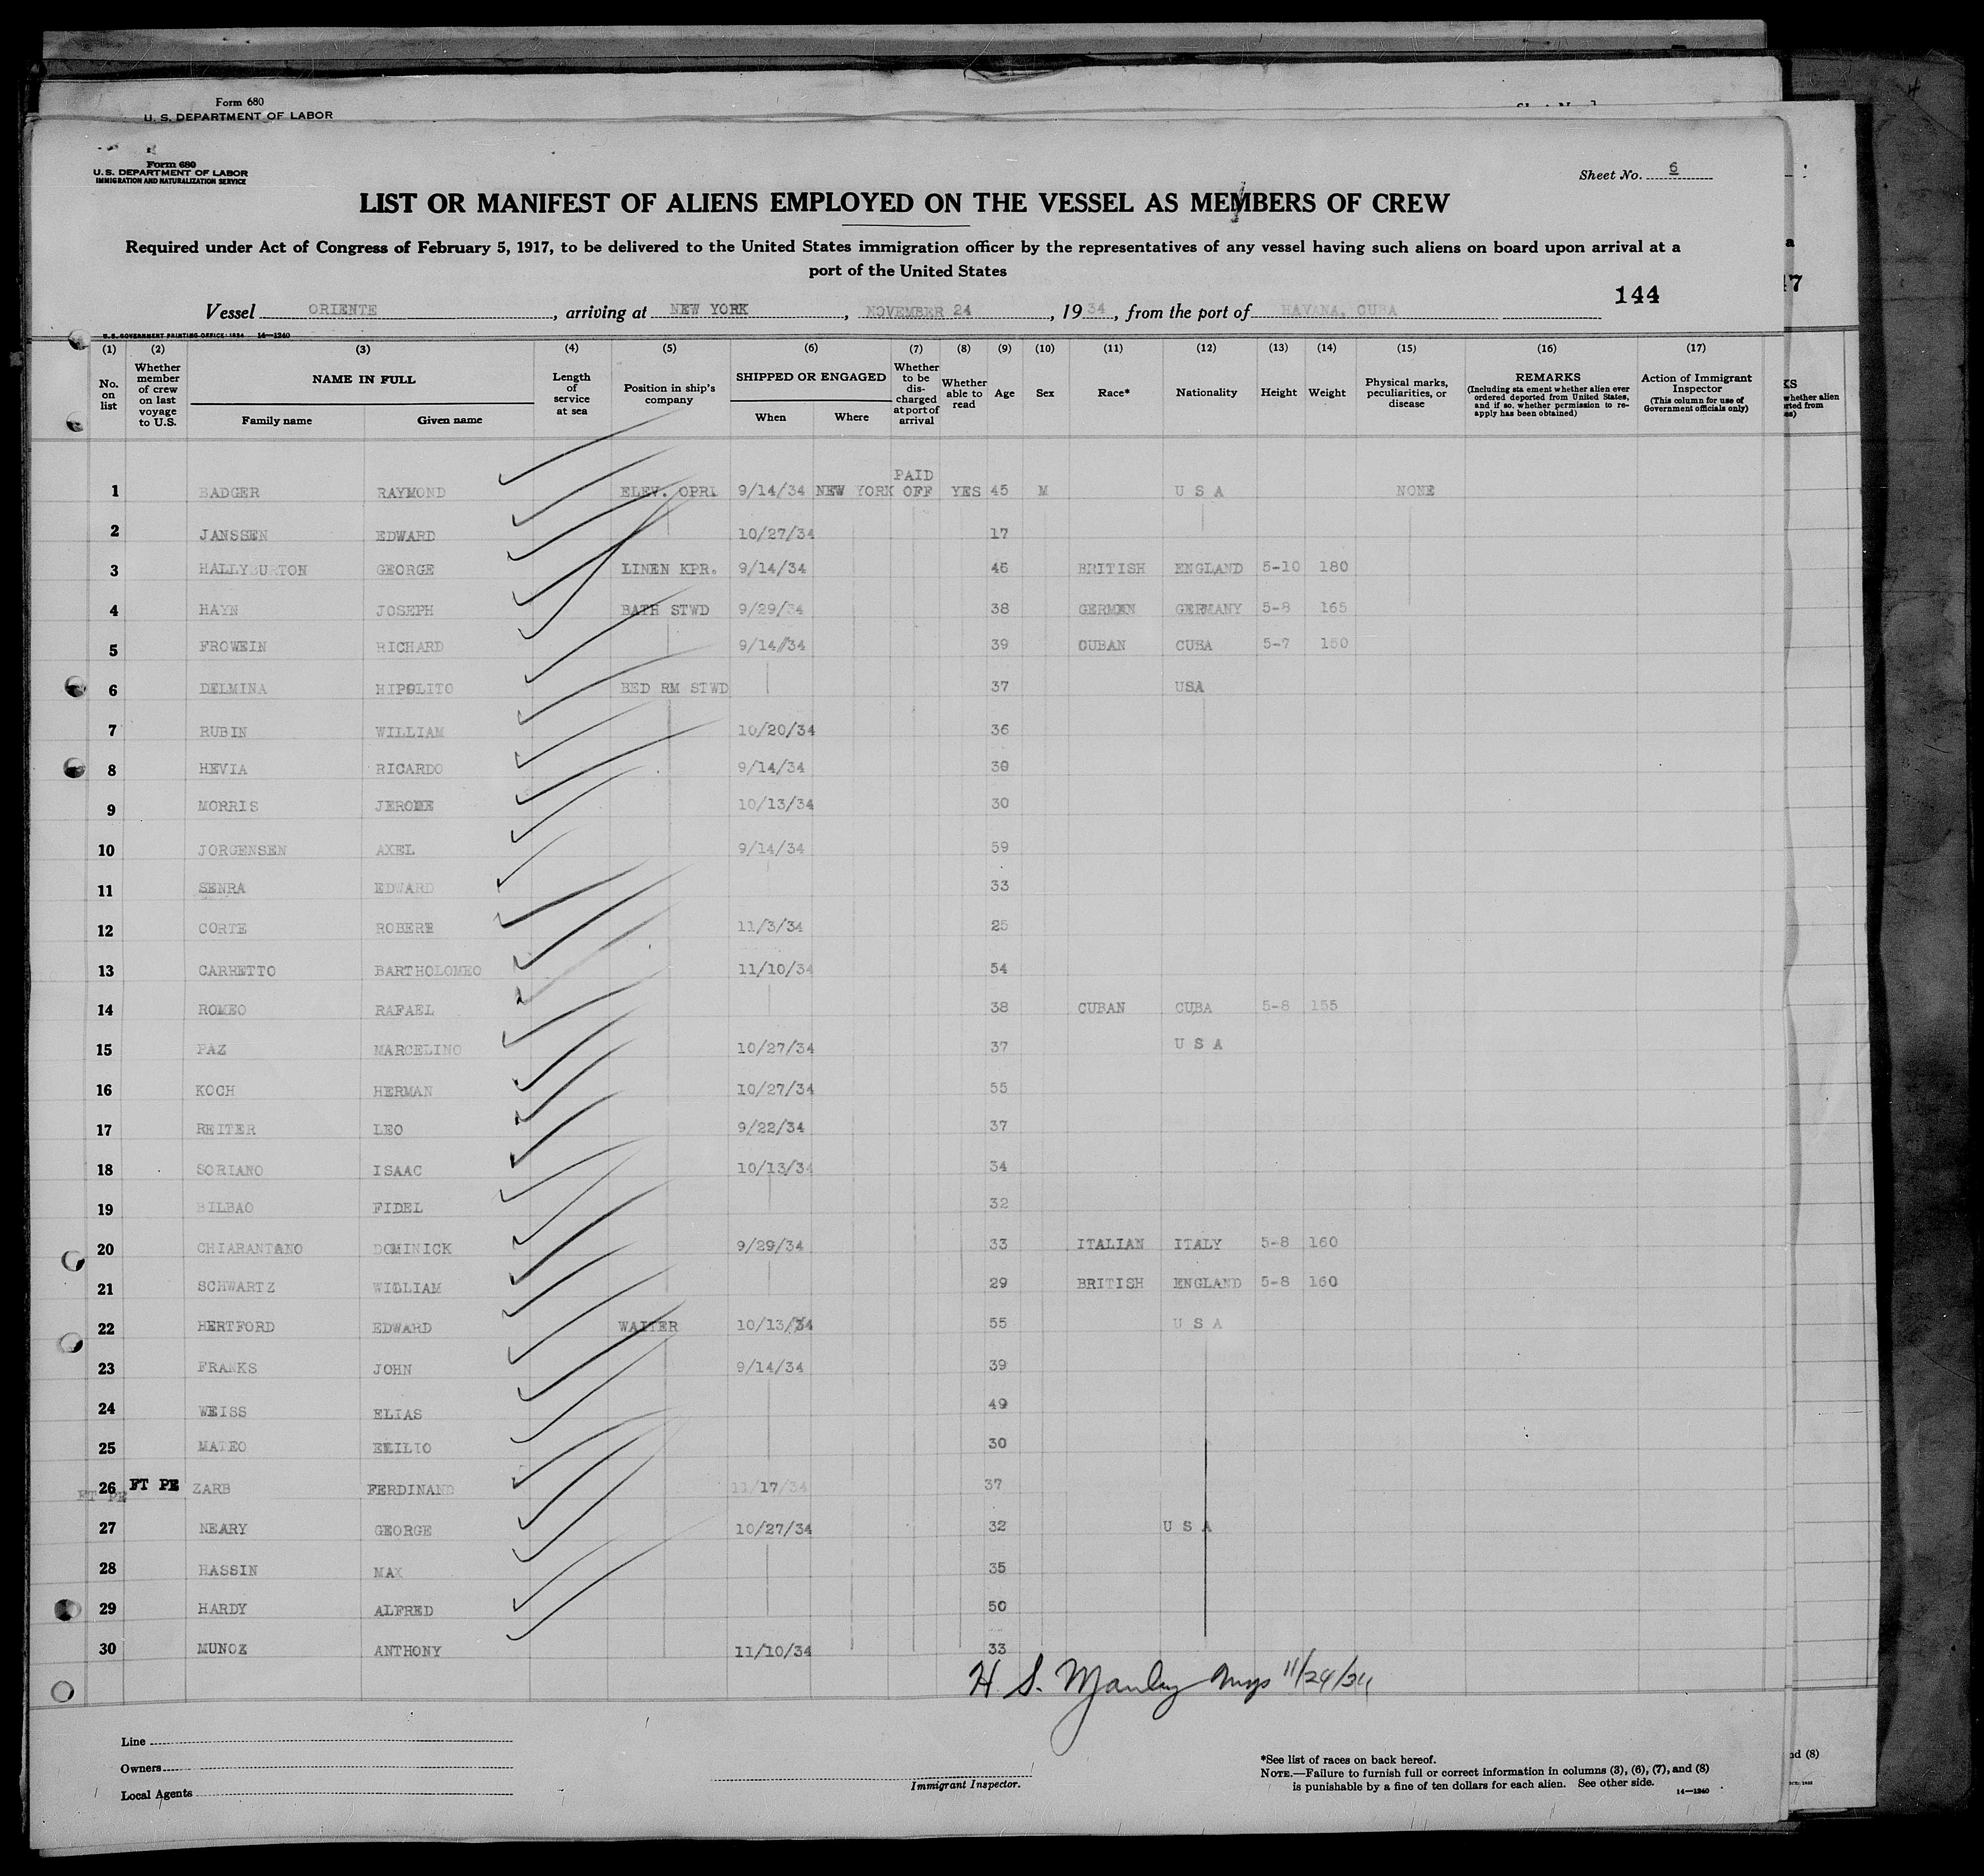 Form 680
U. S. DEPARTMENT OF LABOR
Form 680
U. S. DEPARTMENT OF LABOR
IMMIGRATION AND NATURALIZATION SERVICE
Sheet No. 6
LIST OR MANIFEST OF ALIENS EMPLOYED ON THE VESSEL AS MEMBERS OF CREW
Required under Act of Congress of February 5, 1917, to be delivered to the United States immigration officer by the representatives of any vessel having such aliens on board upon arrival at a
port of the United States
144
Vessel ORIENTE, arriving at NEW YORK, NOVEMBER 24, 1934, from the port of HAVANA, CUBA
U. S. GOVERNMENT PRINTING OFFICE: 1934 14—1240
(1) (2) (3) (4) (5) (6) (7) (8) (9) (10) (11) (12) (13) (14) (15) (16) (17)
No. on list
Whether member of crew on last voyage to U.S.
NAME IN FULL
Family name
Given name
Length of service at sea
Position in ship's company
SHIPPED OR ENGAGED
When
Where
Whether to be discharged at port of arrival
Whether able to read
Age
Sex
Race*
Nationality
Height
Weight
Physical marks, peculiarities, or disease
REMARKS
(Including sta ement whether alien ever ordered deported from United States, and if so, whether permission to reapply has been obtained)
Action of Immigrant Inspector
(This column for use of Government officials only)
1 BADGER RAYMOND ELEV. OPRL 9/14/34 NEW YORK PAID OFF YES 45 M U S A NONE
2 JANSSEN EDWARD 10/27/34 17
3 HALLYBURTON GEORGE LINEN KPR. 9/14/34 46 BRITISH ENGLAND 5-10 180
4 HAYN JOSEPH BATH STWD 9/29/34 38 GERMEN GERMANY 5-8 165
5 FROWEIN RICHARD 9/14/34 39 CUBAN CUBA 5-7 150
6 DELMINA HIPOLITO BED RM STWD 37 USA
7 RUBIN WILLIAM 10/20/34 36
8 HEVIA RICARDO 9/14/34 30
9 MORRIS JEROME 10/13/34 30
10 JORGENSEN AXEL 9/14/34 59
11 SENRA EDWARD 33
12 CORTE ROBERE 11/3/34 25
13 CARRETTO BARTHOLOMEO 11/10/34 54
14 ROMEO RAFAEL 38 CUBAN CUBA 5-8 155
15 PAZ MARCELINO 10/27/34 37 U S A
16 KOCH HERMAN 10/27/34 55
17 REITER LEO 9/22/34 37
18 SORIANO ISAAC 10/13/34 34
19 BILBAO FIDEL 32
20 CHIARANTANO DOMINICK 9/29/34 33 ITALIAN ITALY 5-8 160
21 SCHWARTZ WILLIAM 29 BRITISH ENGLAND 5-8 160
22 HERTFORD EDWARD WAITER 10/13/34 55 U S A
23 FRANKS JOHN 9/14/34 39
24 WEISS ELIAS 49
25 MATEO EMILIO 30
26 FT PE ZARB FERDINAND 11/17/34 37
FT PE
27 NEARY GEORGE 10/27/34 32 U S A
28 HASSIN MAX 35
29 HARDY ALFRED 50
30 MUNOZ ANTHONY 11/10/34 33
H. S. Manley 11/24/34
Line
Owners
Local Agents
Immigrant Inspector.
*See list of races on back hereof.
NOTE.—Failure to furnish full or correct information in columns (3), (6), (7), and (8)
is punishable by a fine of ten dollars for each alien. See other side.
14—1240